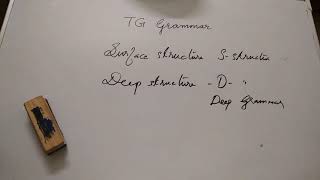 TG Grammar
Surface structure S-structure
Deep structure - D- "
Deep Grammar